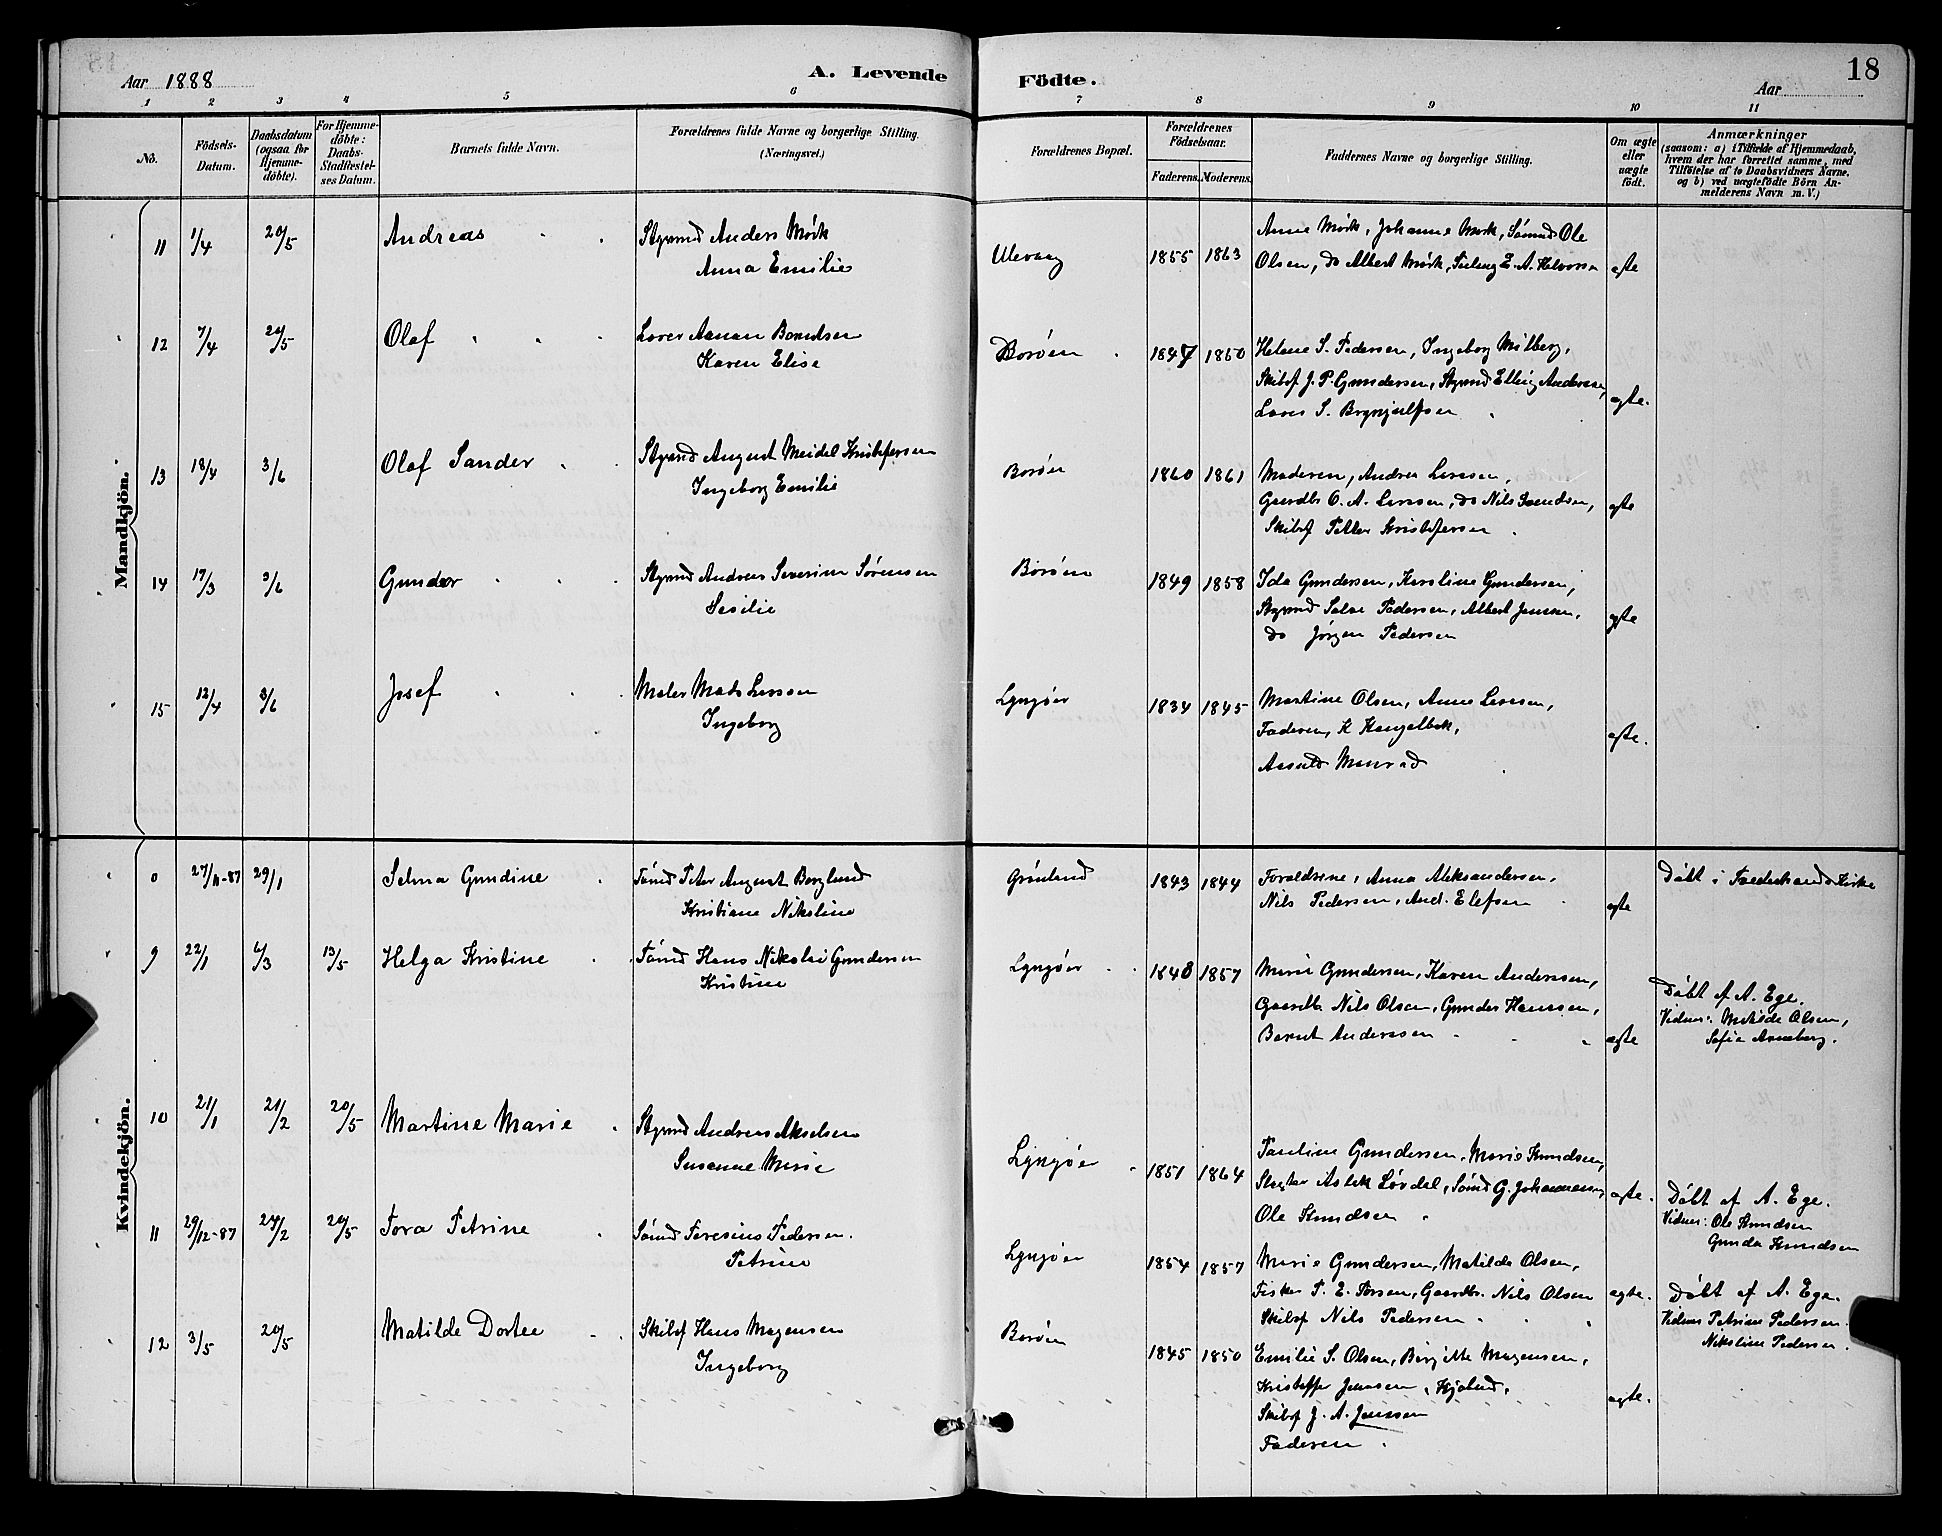 Aar 1888
A. Levende Födte.
Aar
18
1 2 3 4 5 6 7 8 9 10 11
No.
Födsels-Datum.
Daabsdatum (ogsaa for Hjemme-döbte).
For Hjemme-döbte: Daabs-Stadfæstel-ses Datum.
Barnets fulde Navn.
Forældrenes fulde Navne og borgerlige Stilling. (Næringsvei.)
Forældrenes Bopæl.
Forældrenes Födselsaar.
Faderens. Moderens.
Faddernes Navne og borgerlige Stilling.
Om ægte eller uægte födt.
Anmærkninger
(saasom: a) i Tilfælde af Hjemmedaab,
hvem der har forrettet samme, med
Tilföielse af to Daabsvidners Navne,
og b) ved uægtefödte Börn An-
melderens Navn m. V.)
Mandkjön.
11 1/4 20/5 Andreas
Styrmd Anders Mørk
Anna Emilie
Ulevaag 1855 1863
Anne Mørk, Johanne Mørk, Sømnd Ole
Olsen, do Albert Mørk, E. A. Halvorsen
ægte
12 7/4 20/5 Olaf
Loser Aanon Berntsen
Karen Elise
Borøen 1847 1850
Helene S. Pedersen, Ingeborg Milberg,
Skibsf J. P. Gundersen, Styrmd Elling Andersen,
Loser S. Brynjulfsen
ægte.
13 18/4 3/6 Olaf Sander
Styrmd August Meidel Kristofersen
Ingeborg Emilie
Borøen 1860 1861
Moderen, Andrea Larsen,
Gaardbr O. A. Larsen, do Nils Svendsen,
Skibsf Petter Kristofersen
ægte
14 17/3 3/6 Gunder
Styrmd Andreas Severin Sørensen
Sesilie
Borøen 1849 1858
Ida Gundersen, Karoline Gundersen,
Styrmd Salve Pedersen, Albert Jensen,
do Jørgen Pedersen
ægte
15 12/4 3/6 Josef
Maler Mads Larsen
Ingeborg
Lyngøer 1834 1845
Martine Olsen, Anne Larsen,
Faderen, K
Monrad
ægte.
Kvindekjön.
27/11-87 29/1 Selma Gundine
Tømd Peter August Berglund
Kristiane Nikoline
Grønland 1843 1844
Forældrene, Anna Aleksandersen,
Nils Pedersen, And. Elefsen
ægte
Døbt i Kirke
9 22/1 6/3 13/5 Helga Kristine
Tømd Hans Nikolai Gundersen
Kristine
Lyngøer 1848 1857
Marie Gundersen, Karen Andersen,
Gaardbr Nils Olsen, Gunder Hansen,
Bernt Andersen
ægte
Døbt af A. Ege.
Vidner: Matilde Olsen,
Sofie Arneberg.
10 21/1 21/2 20/5 Martine Marie
Styrmd Andreas Akselsen
Susanne Marie
Lyngøer 1851 1864
Pauline Gundersen, Marie Knudsen,
Aslak Løvdal, Sømd G. Johannesen
Ole Knudsen
ægte.
Døbt af A. Ege.
Vidner: Ole Knudsen
Gunda Knudsen
11 29/12-87 24/2 20/5 Tora Petrine
Sømd Teresius Pedersen.
Petrine
Lyngøer 1854 1857
Marie Gundersen, Matilde Olsen,
Fisker T. E. Torsen, Gaardbr. Nils Olsen
Skibsf Nils Pedersen
ægte.
Døbt af A. Ege.
Vidner Petrine Pedersen
Nikoline Pedersen.
12 3/5 20/5 Matilde Dortea
Skibsf Hans Magensen
Ingeborg
Borøen 1845 1850
Emilie S. Olsen, Birgitte Magensen,
Kristoffer Jensen,
Skibsf J. A. Jenssen
Faderen.
ægte.